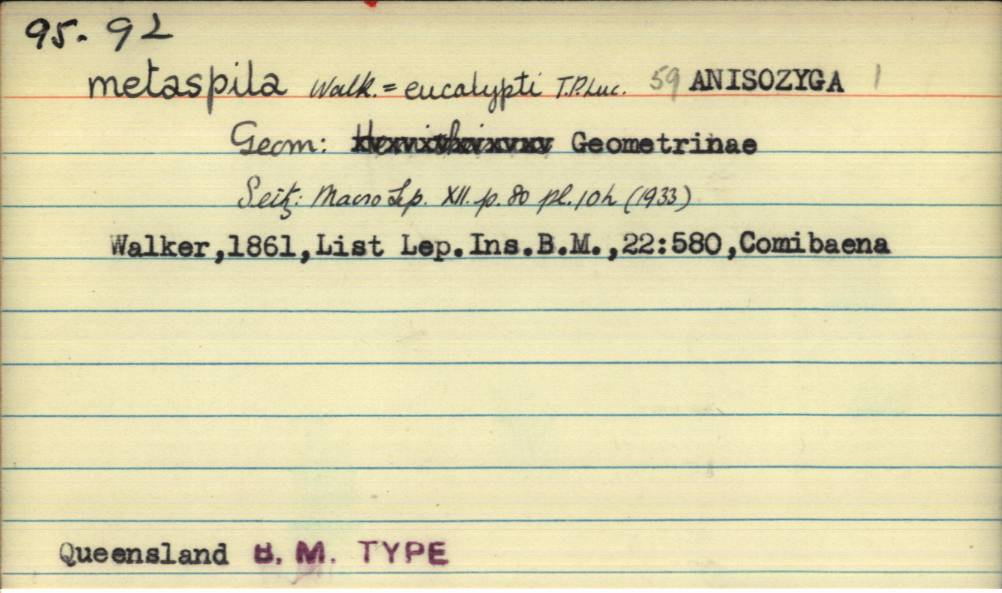 95. 92
metaspila Walk. = eucalypti T.P.Luc. 59 ANISOZYGA 1
Geom: Geometrinae
Seitz: Macro Lep. XII. p. 80 pl. 10h (1933)
Walker,1861,List Lep.Ins.B.M.,22:580,Comibaena
Queensland B. M. TYPE